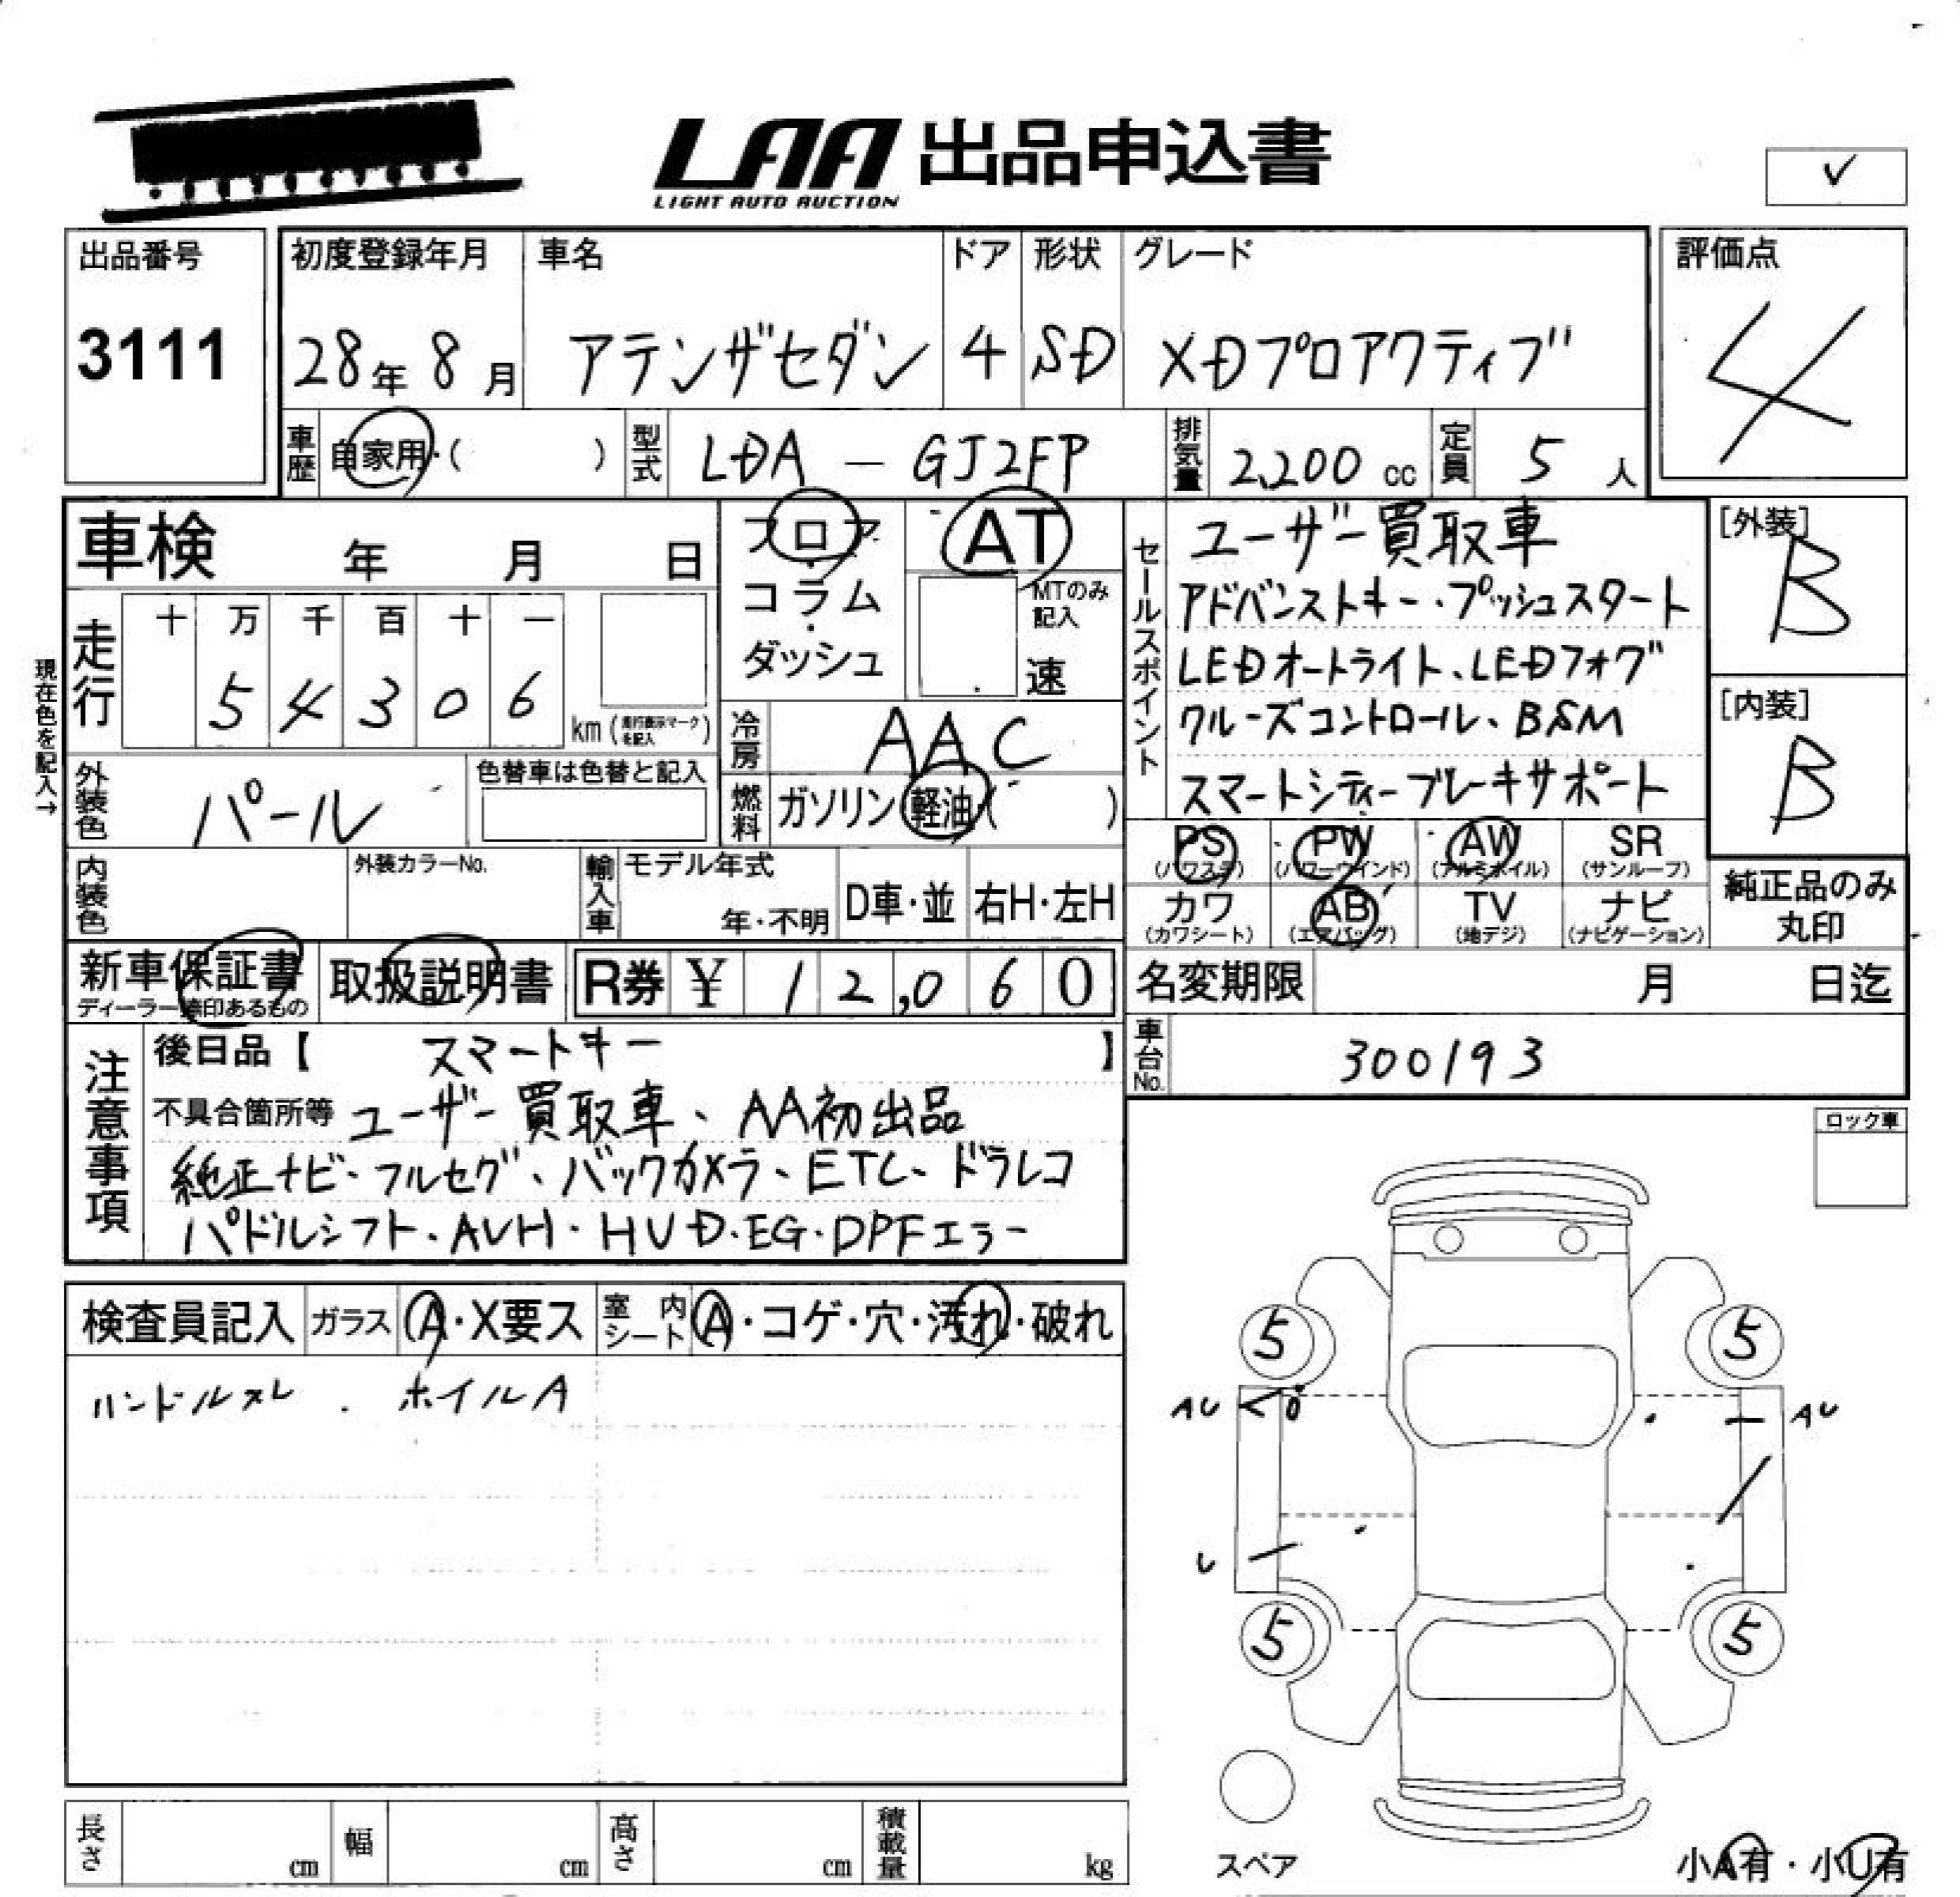 LAA 出品申込書
LIGHT AUTO AUCTION
✓
出品番号
3111
初度登録年月
28年 8月
車名
アテンザセダン
ドア
4
形状
SD
グレード
XDプロアクティブ
評価点
4
車歴 自家用・( )
型式 LDA - GJ2FP
排気量 2,200 cc
定員 5 人
車検 年 月 日
走行
十 万 千 百 十 一
5 4 3 0 6
km (走行表示マークを記入)
現在色を記入→
外装色 パール
色替車は色替と記入
内装色
外装カラーNo.
輸入車
モデル年式
年・不明
D車・並
右H・左H
フロア
コラム
ダッシュ
AT
MTのみ記入
速
冷房 AAC
燃料 ガソリン・軽油・( )
セールスポイント
ユーザー買取車
アドバンストキー・プッシュスタート
LEDオートライト、LEDフォグ
クルーズコントロール、BSM
スマートシティーブレーキサポート
[外装]
B
[内装]
B
PS (パワステ)
PW (パワーウインド)
AW (アルミホイル)
SR (サンルーフ)
カワ (カワシート)
AB (エアバッグ)
TV (地デジ)
ナビ (ナビゲーション)
純正品のみ
丸印
新車保証書
ディーラー捺印あるもの
取扱説明書
R券 ¥ 12,060
名変期限 月 日迄
車台No. 300193
注意事項
後日品【 スマートキー 】
不具合箇所等 ユーザー買取車、AA初出品
純正ナビ・フルセグ、バックカメラ、ETC、ドラレコ
パドルシフト、AVH・HUD・EG・DPFエラー
ロック車
検査員記入
ガラス A・X要ス
室内シート A・コゲ・穴・汚れ・破れ
ハンドルスレ . ホイルA
5
5
AU
AU
U
5
5
スペア
小A有・小U有
長さ cm
幅 cm
高さ cm
積載量 kg